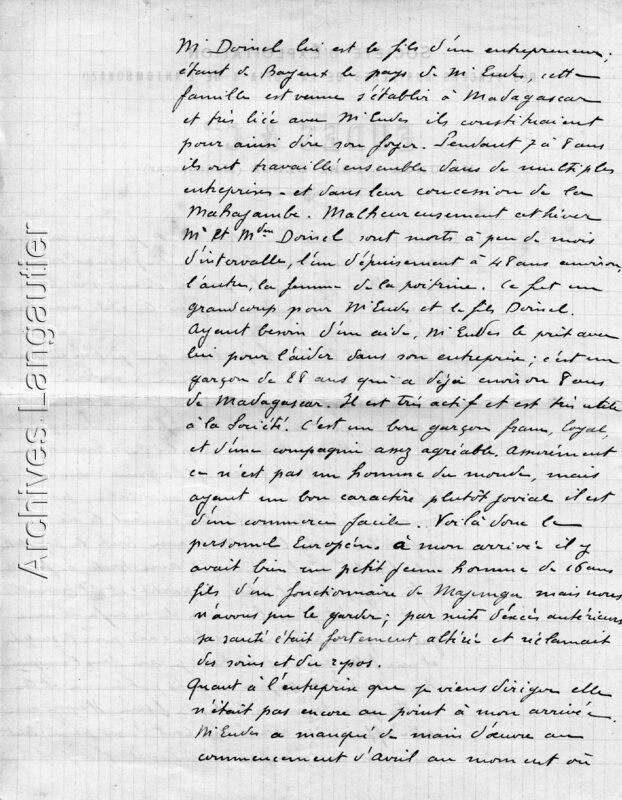 Mr Doinel lui est le fils d'un entrepreneur;
étant de Bayeux le pays de Mr Eudes, cette
famille est venue s'établir à Madagascar
et très liée avec Mr Eudes ils constituaient
pour ainsi dire son foyer. Pendant 7 à 8 ans
ils ont travaillé ensemble dans de multiples
entreprises - et dans leur concession de la
Mahajambe. Malheureusement cet hiver
Mr et Mdme Doinel sont morts à peu de mois
d'intervalle, l'un d'épuisement à 48 ans environ,
l'autre, la femme de la poitrine. Ce fut un
grand coup pour Mr Eudes et le fils Doinel.
Ayant besoin d'un aide, Mr Eudes le prit avec
lui pour l'aider dans son entreprise; c'est un
garçon de 28 ans qui a déjà environ 8 ans
de Madagascar. Il est très actif et est très utile
à la Société. C'est un bon garçon franc, loyal,
et d'une compagnie assez agréable. Assurément
ce n'est pas un homme du monde, mais
ayant un bon caractère plutôt jovial il est
d'un commerce facile. Voilà donc le
personnel Européen. à mon arrivée il y
avait bien un petit jeune homme de 16 ans
fils d'un fonctionnaire de Majunga mais nous
n'avons pu le garder; par suite d'excès antérieurs
sa santé était fortement altérée et réclamait
des soins et du repos.
Quant à l'entreprise que je viens diriger elle
n'était pas encore au point à mon arrivée.
Mr Eudes a manqué de main d'œuvre au
commencement d'avril au moment où
Archives Langautier